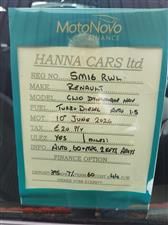 MotoNovo
FINANCE
HANNA CARS ltd
REG NO. SM16 RWL
MAKE. RENAULT
MODEL. CLIO DYNAMIQUE NAV
FUEL. TURBO DIESEL AUTO 1.5
MOT. 10th JUNE 2026
TAX. £20 P/Y
ULEZ. YES MILES:
INFO. AUTO, 60+MPG, 2 KEYS,
FINANCE OPTION